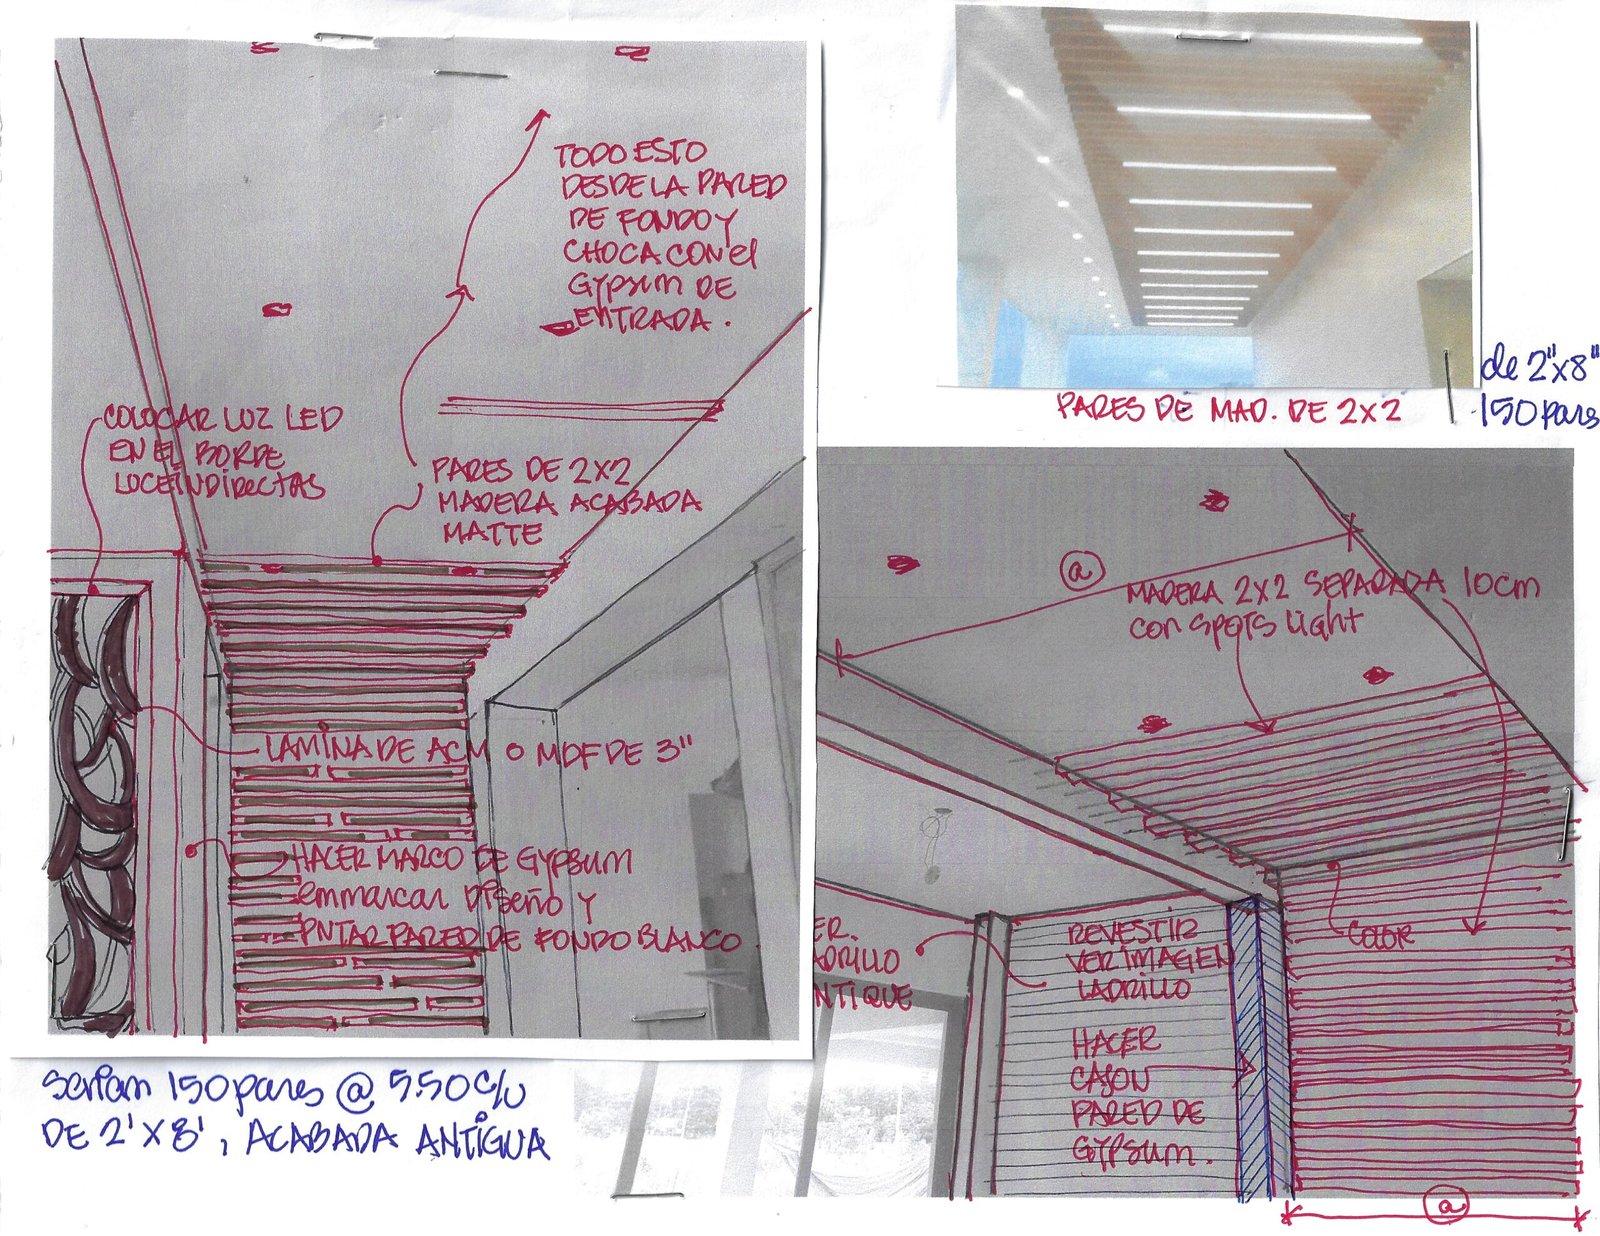 TODO ESTO
DESDE LA PARED
DE FONDO Y
CHOCA CON el
GYPSUM DE
ENTRADA.
COLOCAR LUZ LED
EN EL BORDE
LUCEINDIRECTAS
PARES DE 2X2
MADERA ACABADA
MATTE
LAMINA DE ACM O MDF DE 3"
HACER MARCO DE GYPSUM
emmarcar DISEÑO Y
PINTAR PARED DE FONDO BLANCO
serian 150 pares @ 5.50 c/u
DE 2'X8', ACABADA ANTIGUA
de 2"x8"
150 pares
PARES DE MAD. DE 2X2
a
MADERA 2X2 SEPARADA 10cm
con spots light
COLOR
ER.
ADRILLO
NTIQUE
REVESTIR
VER IMAGEN
LADRILLO
HACER
CAJON
PARED DE
GYPSUM.
a